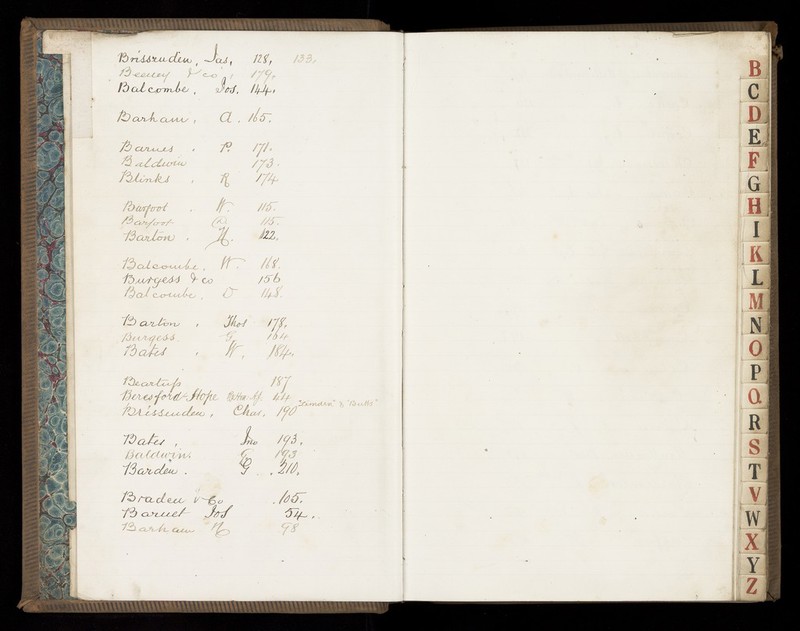 Brissenden, Jas, 128, 133,
Beeney & co, 179,
Balcombe, Jos. 144,
Barham, A. 165.
Barnes . P. 171.
Baldwin 173.
Blinks . R 174
Barfoot . W. 115.
Barfoot 115.
Barton . H. 122.
Balcombe. W. 168.
Burgess & co 156
Balcombe. D 148.
Barton . Thos 178,
Burgess G 164
Bates . W, 184,
187
Beresford-Hope 44
Brissenden, Chas, 190
Bates, Jno 193.
Baldwin 193
Barden . G . 210,
Braden & Co .105.
Barnet Jos 54.
Barham W 98
B
C
D
E
F
G
H
I
K
L
M
N
O
P
Q
R
S
T
V
W
X
Y
Z